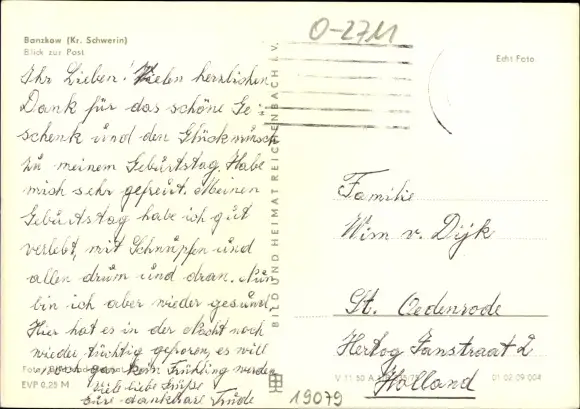 Banzkow (Kr. Schwerin)
Blick zur Post
Ihr Lieben! Vielen herzlichen
Dank für das schöne Ge-
schenk und den Glückwunsch
zu meinem Geburtstag. Habe
mich sehr gefreut. Meinen
Geburtstag habe ich gut
verlebt, mit Schnupfen und
allen drum und dran. Nun
bin ich aber wieder gesund.
Hier hat es in der Nacht noch
wieder tüchtig gefroren, es will
noch gar kein Frühling werden
Viele liebe Grüße
Eure dankbare Trude
EVP 0,25 M
BILD UND HEIMAT REICHENBACH i. V.
O-2711
Echt Foto
Familie
Wim v. Dijk
St. Oedenrode
Hertog Janstraat 2
Holland
V 11 50 A
01 02 09 004
19079